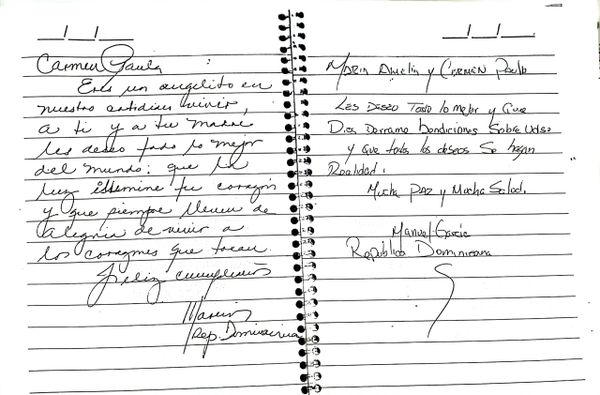 Carmen Paula
Eres un angelito en
nuestro cotidiano vivir,
a ti y a tu madre
les deseo todo lo mejor
del mundo: que la
luz ilumine tu corazón
y que siempre lleven de
alegria de vivir a
los corazones que tocan.
Feliz cumpleaños
Rep. Dominicana
Maria Amelia y Carmen Paula
Les Deseo Todo lo mejor y Que
Dios Derrame bendiciones Sobre Uds
y Que todos los deseos Se hagan
Realidad.
Mucha Paz y Mucha Salud.
Manuel Garcia
Republica Dominicana